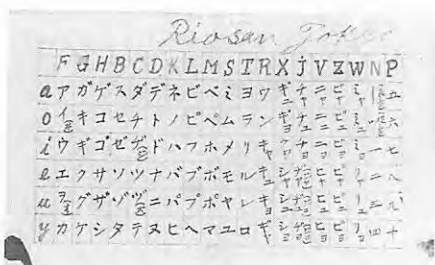 Riosan Tokeo
F G H B C D K L M S T R X J V Z W N P
a ア ガ ゲ ス ダ デ ネ ビ ベ ミ ヨ ワ ギニャ チャ ニャ ビャ ミャ 五
o キ コ セ チ ト ノ ピ ペ ム ラ ン ギョ チュ ニュ ビュ ミュ 六
i ウ ギ ゴ ゼ ド ハ フ ホ メ リ キャ チョ ニョ ビョ ミョ 一 七
e エ ク サ ソ ツ ナ バ ブ ボ モ ル キュ シャ ヒャ ピャ リャ 二 八
u グ ザ ゾ ニ パ プ ポ ヤ レ キョ シュ ヒュ ピュ リュ 三 九
y カ ケ シ タ テ ヌ ヒ ヘ マ ユ ロ ギャ ショ ヒョ ピョ リョ 四 十